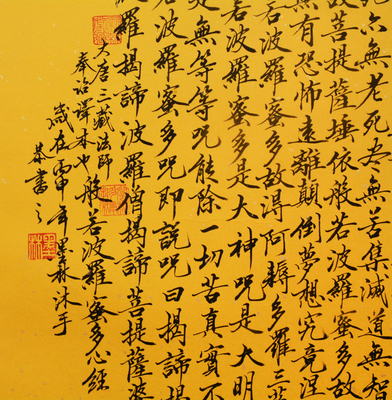 死亦無老死盡無苦集滅道無智
故菩提薩埵依般若波羅蜜多故
無有恐怖遠離顛倒夢想究竟涅
若波羅蜜多故得阿耨多羅三藐
若波羅蜜多是大神咒是大明
是無等等咒能除一切苦真實不
若波羅蜜多咒即說咒曰揭諦揭
羅揭諦波羅僧揭諦菩提薩婆
般若波羅蜜多心經
大唐三藏法師
奉詔譯本也
歲在丙申年墨林沐手
恭書之